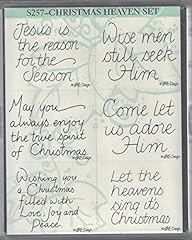 S257-CHRISTMAS HEAVEN SET
Jesus is
the reason
for the
Season
Wise men
still seek
Him
May you
always enjoy
the true spirit
of Christmas
Come let
us adore
Him
Wishing you
a Christmas
filled with
Love, Joy and
Peace
Let the
heavens
sing its
Christmas